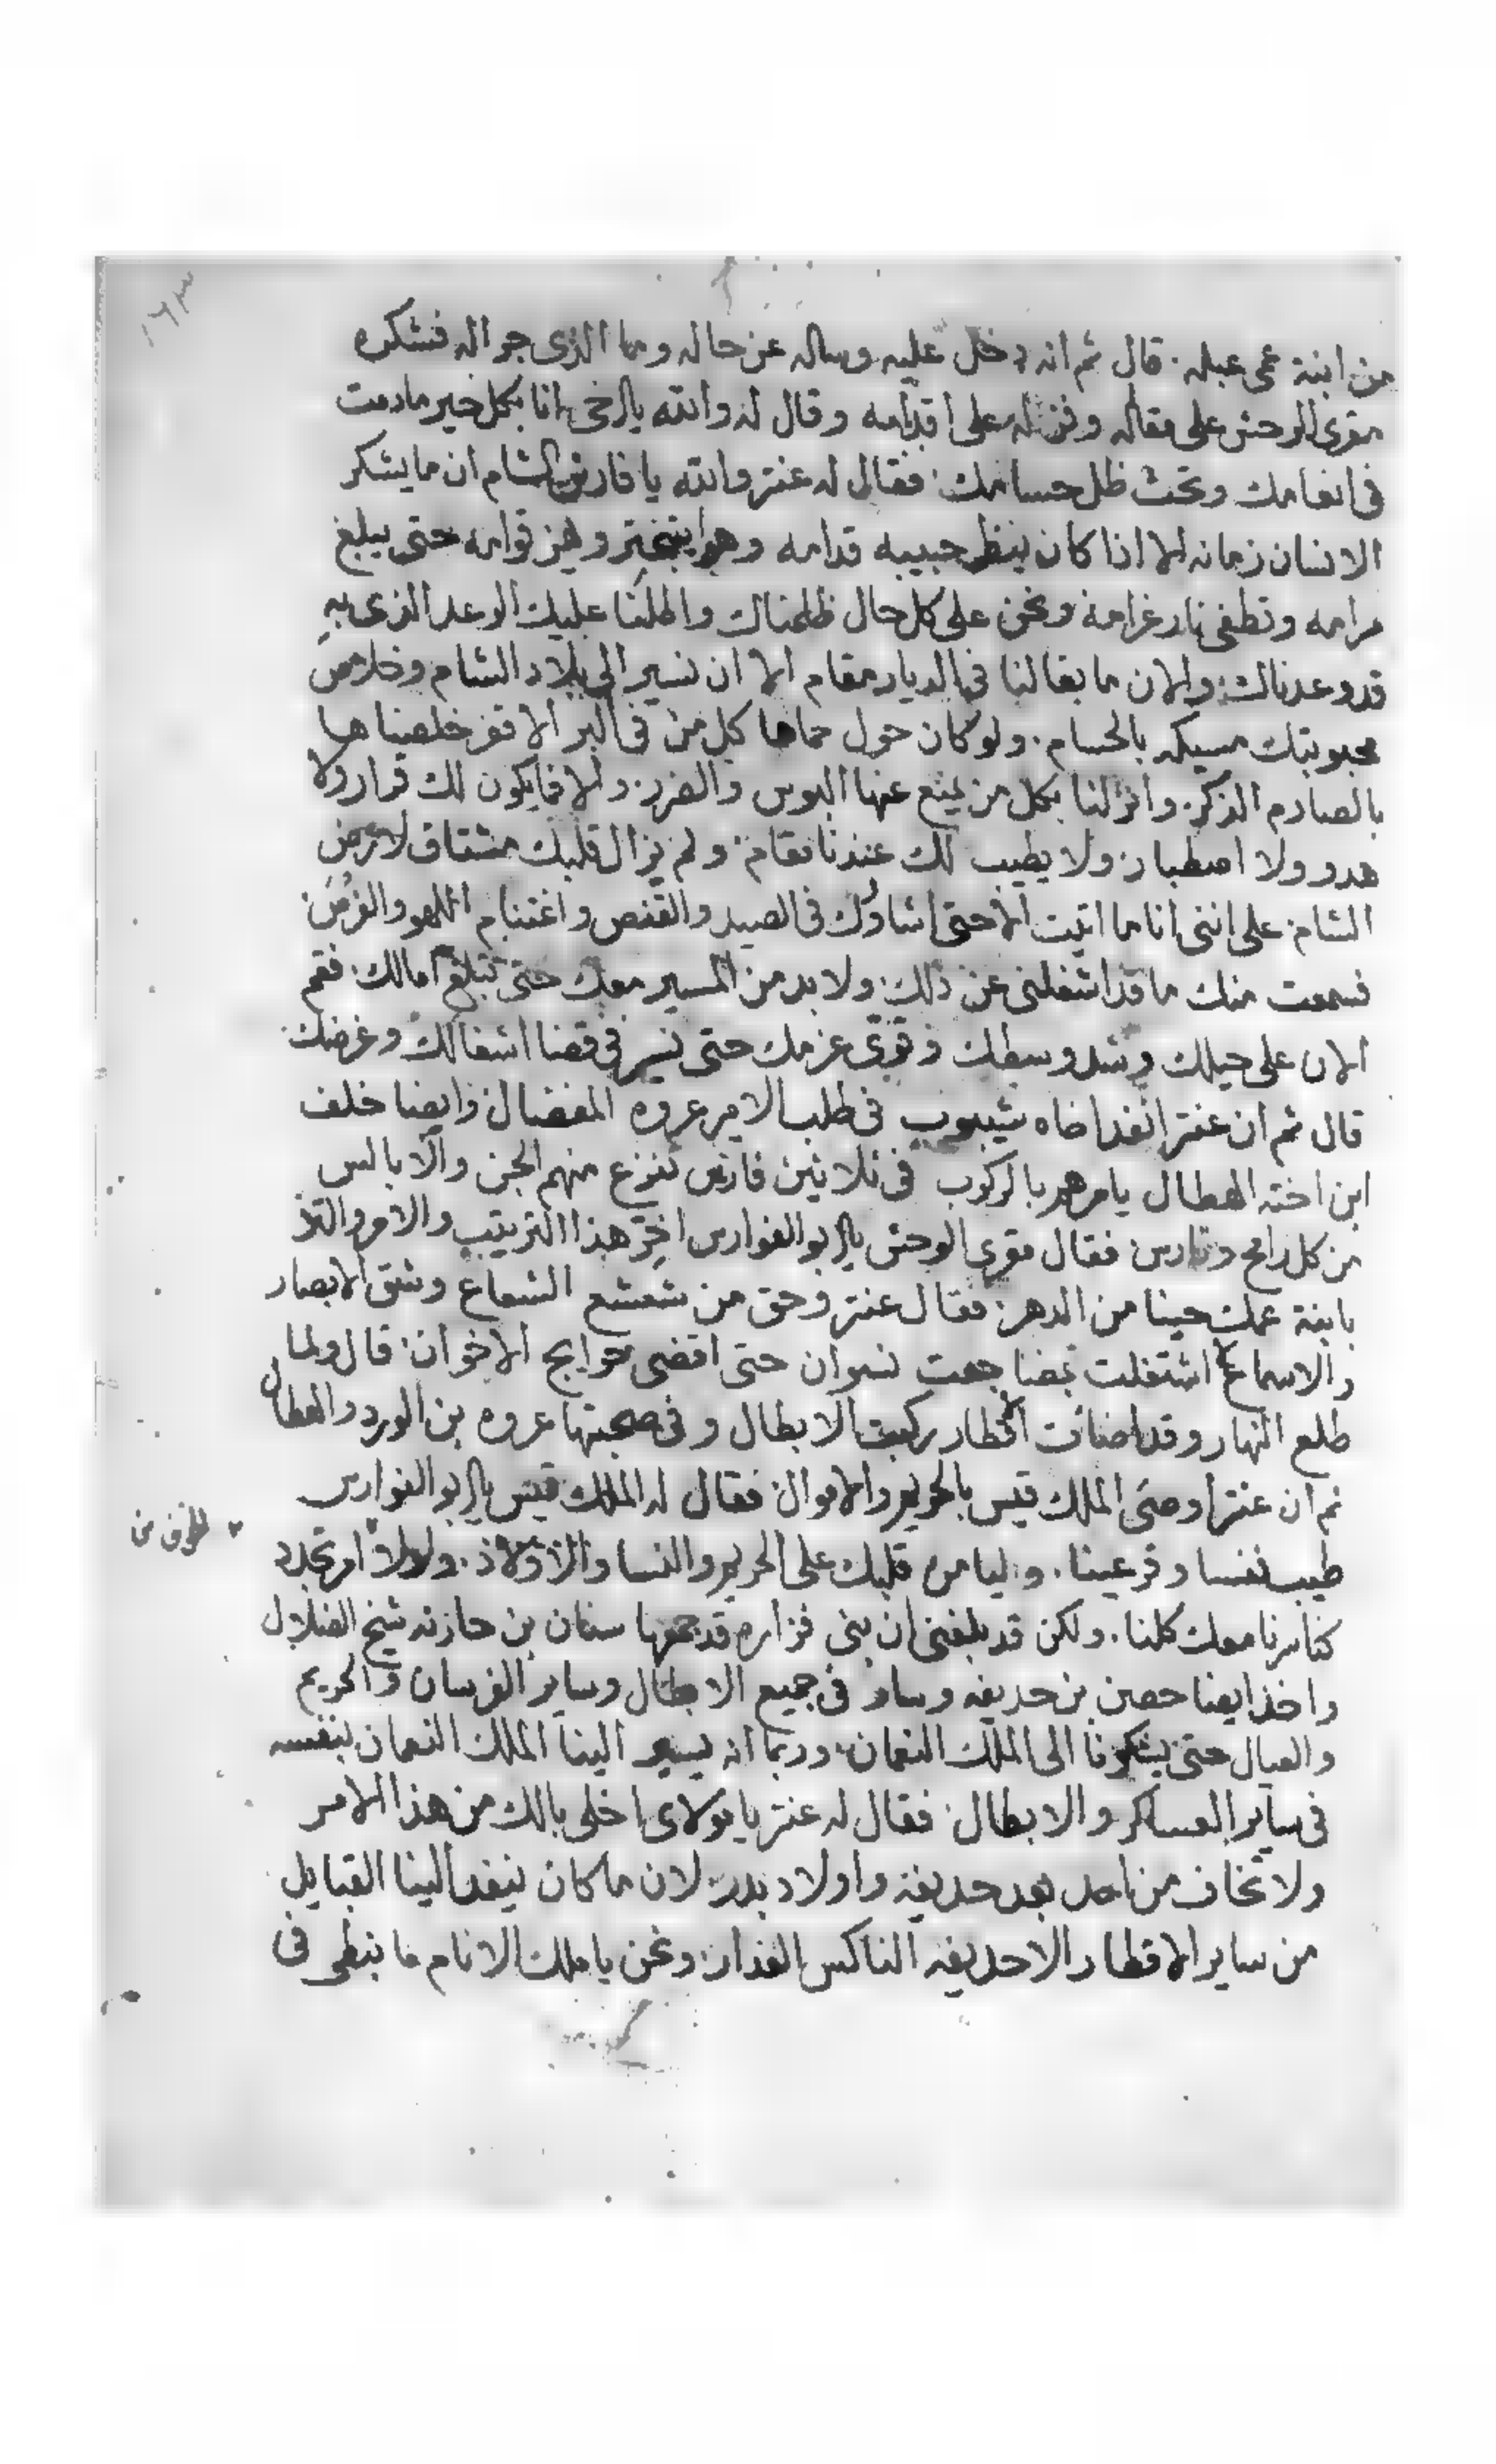 ١٦٣
من ابنة عمى عبله. قال ثم انه دخل عليه وساله عن حاله وما الذى جراله فشكره
مقرى الوحش على مقاله وقال له والله يااخى انا بكل خير مادمت
فى انعامك وتحت ظل حسامك. فقال له عنتر والله يا فارس الشام ان ما يشكر
الانسان زمانه الا اذا كان ينظر حبيبه قدامه وهو يتبختر ويهز قوامه حتى يبلغ
مرامه وتطفى نار غرامه ونحن على كل حال ظلمناك واطلنا عليك الوعد الذى به
قد وعدناك والان ما بقالنا فى الديار مقام الا ان نسير الى بلاد الشام وخلاص
محبوبتك مسيكه بالحسام. ولو كان حول حماها كل من فى البر الاقفر خلصناها
بالصارم الذكر. وانزلنا بكل من يمنع عنها البوس والضرر. والا فمايكون لك قرار ولا
هدو ولا اصطبار ولا يطيب لك عندنا مقام. ولم يزال قلبك مشتاق لارض
الشام. على اننى انا ما اتيت الا حتى اشاورك فى الصيد والقنص واغتنام اللهو والفرص
فسمعت منك ما قد اشغلنى عن ذلك. ولابد من المسير معك حتى تبلغ امالك. فقم
الان على حيلك وشد وسطك وقوى عزمك حتى نسير فى قضا اشغالك وغرضك.
قال ثم ان عنتر انفد اخاه شيبوب فى طلب الامير عروه المفضال وايضا خلف
ابن اخته الهطال يامرهم بالركوب فى ثلاثين فارس تفزع منهم الجن والابالس
من كل رامح وتارس. فقال مقرى الوحش ياابو الفوارس اخر هذا الترتيب والامر والتذ
بابنة عمك حينا من الدهر. فقال عنتر وحق من شعشع الشعاع وشق الابصار
والاسماع لا اشتغلت بمضاجعت نسوان حتى اقضى حوايج الاخوان. قال ولما
طلع النهار وقد اضات الاقطار ركبت الابطال وفى صحبتها عروه بن الورد والهطال
ثم ان عنتر اوصى الملك قيس بالحريم والاموال. فقال له الملك قيس ياابو الفوارس
طيب نفسا وقر عينا. وليامن قلبك على الحريم والنسا والاولاد. ولولا امر تجدد
كنا سرنا معك كلنا. ولكن قد بلغنى ان بنى فزاره قد جمعها سنان بن حارثه شيخ الضلال
واخذ ايضا حصن بن حديفه وسار فى جميع الابطال وساير الفرسان والحريم
والعيال حتى يشكونا الى الملك النعمان. وربما انه يسير الينا الملك النعمان بنفسه
فى ساير العساكر والابطال. فقال له عنتر يا مولاى اخلى بالك من هذا الامر
ولا تخاف من احد بعد حديفة واولاد بدر. لان ما كان ينفد الينا القبايل
من ساير الاقطار الا حديفه الناكس الغدار. ونحن يا ملك الانام ما بنطى فى